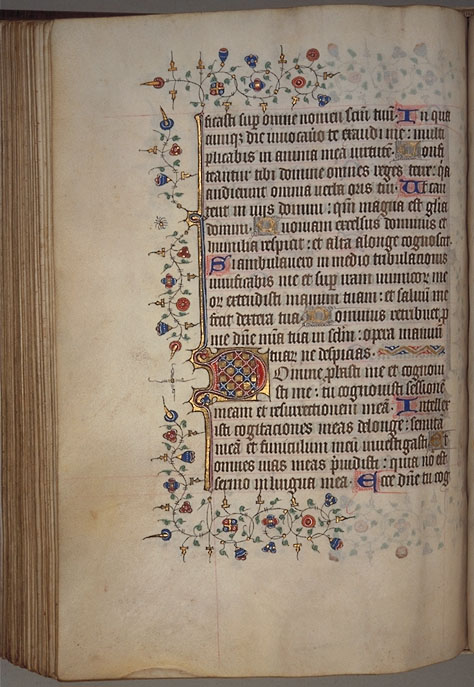 ficasti sup̄ omne nomen scm̄ tuū. In qua
cumq; die inuocauero te exaudi me: multi
plicabis in anima meā uirtutē. Confi
teantur tibi domine omnes reges terre: qa
audierunt omnia uerba oris tui. Et can
tent in uiis domini: qm̄ magna est glīa
domini. Quoniam excelsus dominus et
humilia respicit: et alta alonge cognoscit.
Si ambulauero in medio tribulationis
uiuificabis me et sup̄ iram inimicor me
or extendisti manum tuam: et saluum me
fecit dextera tua. Dominus retribuet p̄
me dn̄e mīa tua in sclm̄: opera manuū
tuar ne despicias.
Domine pbasti me et cognoui
sti me: tu cognouisti sessionē
meam et resurrectionem meā. Intellex
isti cogitaciones meas delonge: semitā
meā et funiculum meū inuestigasti. Et
omnes uias meas p̄uidisti: quia nō est
sermo in lingua mea. Ecce dn̄e tu cog